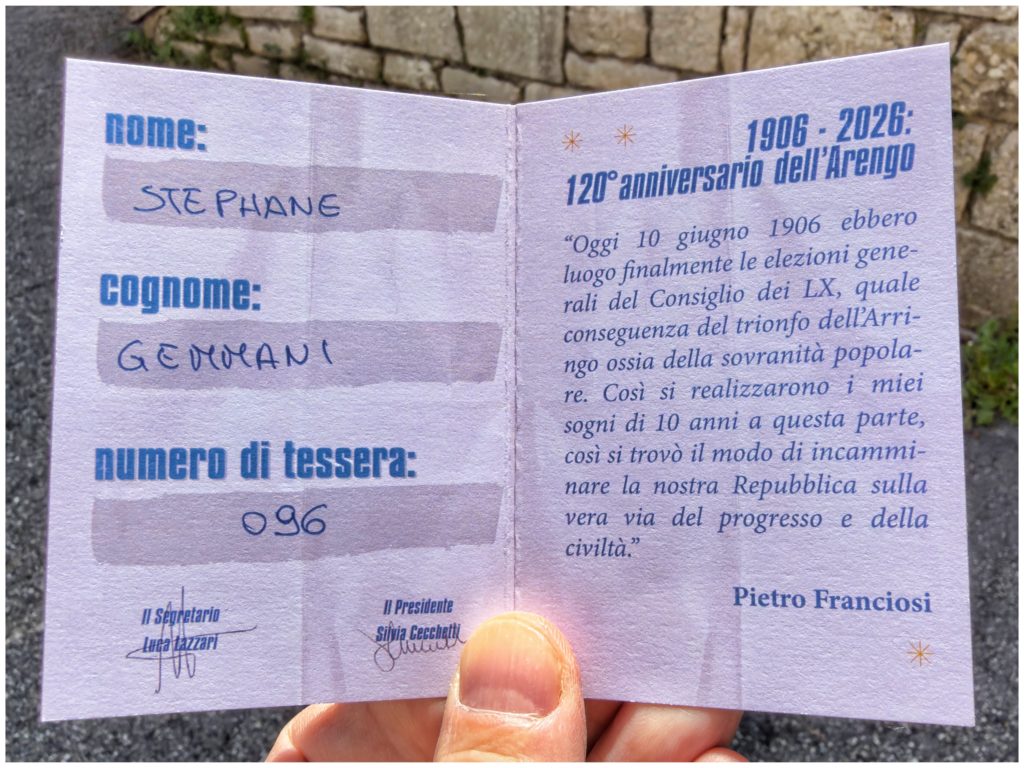 nome:
STEPHANE
cognome:
GEMMANI
numero di tessera:
096
Il Segretario
Luca Lazzari
Il Presidente
Silvia Cecchetti
1906 - 2026:
120° anniversario dell'Arengo
“Oggi 10 giugno 1906 ebbero
luogo finalmente le elezioni gene-
rali del Consiglio dei LX, quale
conseguenza del trionfo dell'Arri-
ngo ossia della sovranità popola-
re. Così si realizzarono i miei
sogni di 10 anni a questa parte,
così si trovò il modo di incammi-
nare la nostra Repubblica sulla
vera via del progresso e della
civiltà.”
Pietro Franciosi